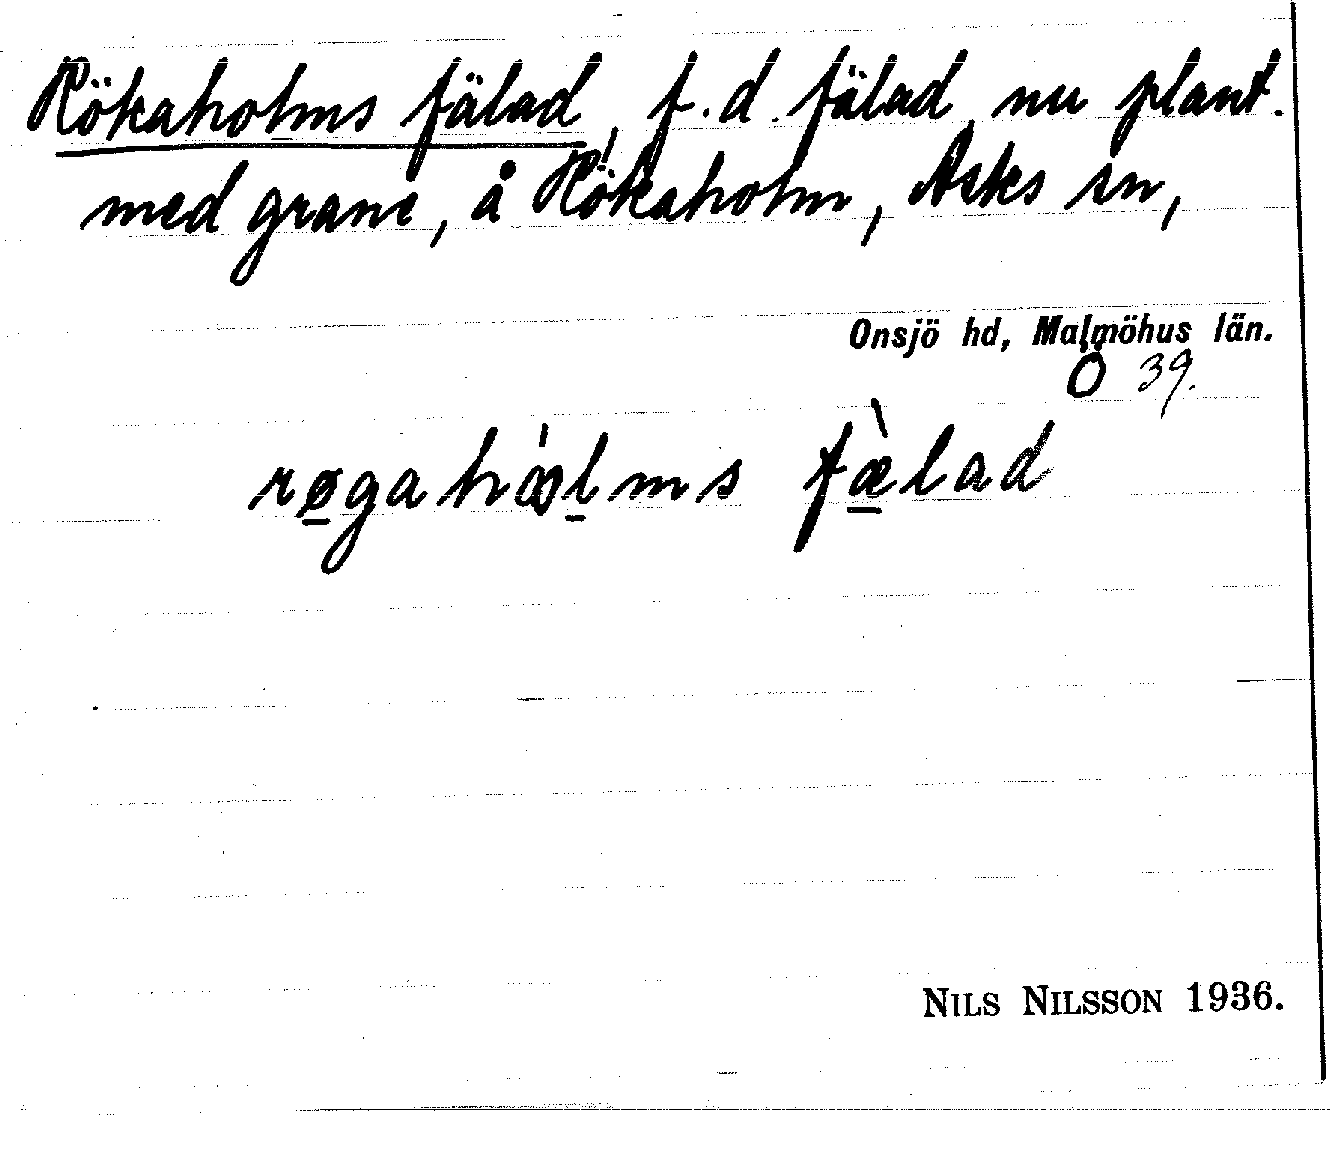 Rökaholms fälad, f.d. fälad, nu plant.
med grane, å Rökaholm, Asks sn,
Onsjö hd, Malmöhus län.
Ö 39.
røgahǫ́lms fæ̀lad
NILS NILSSON 1936.